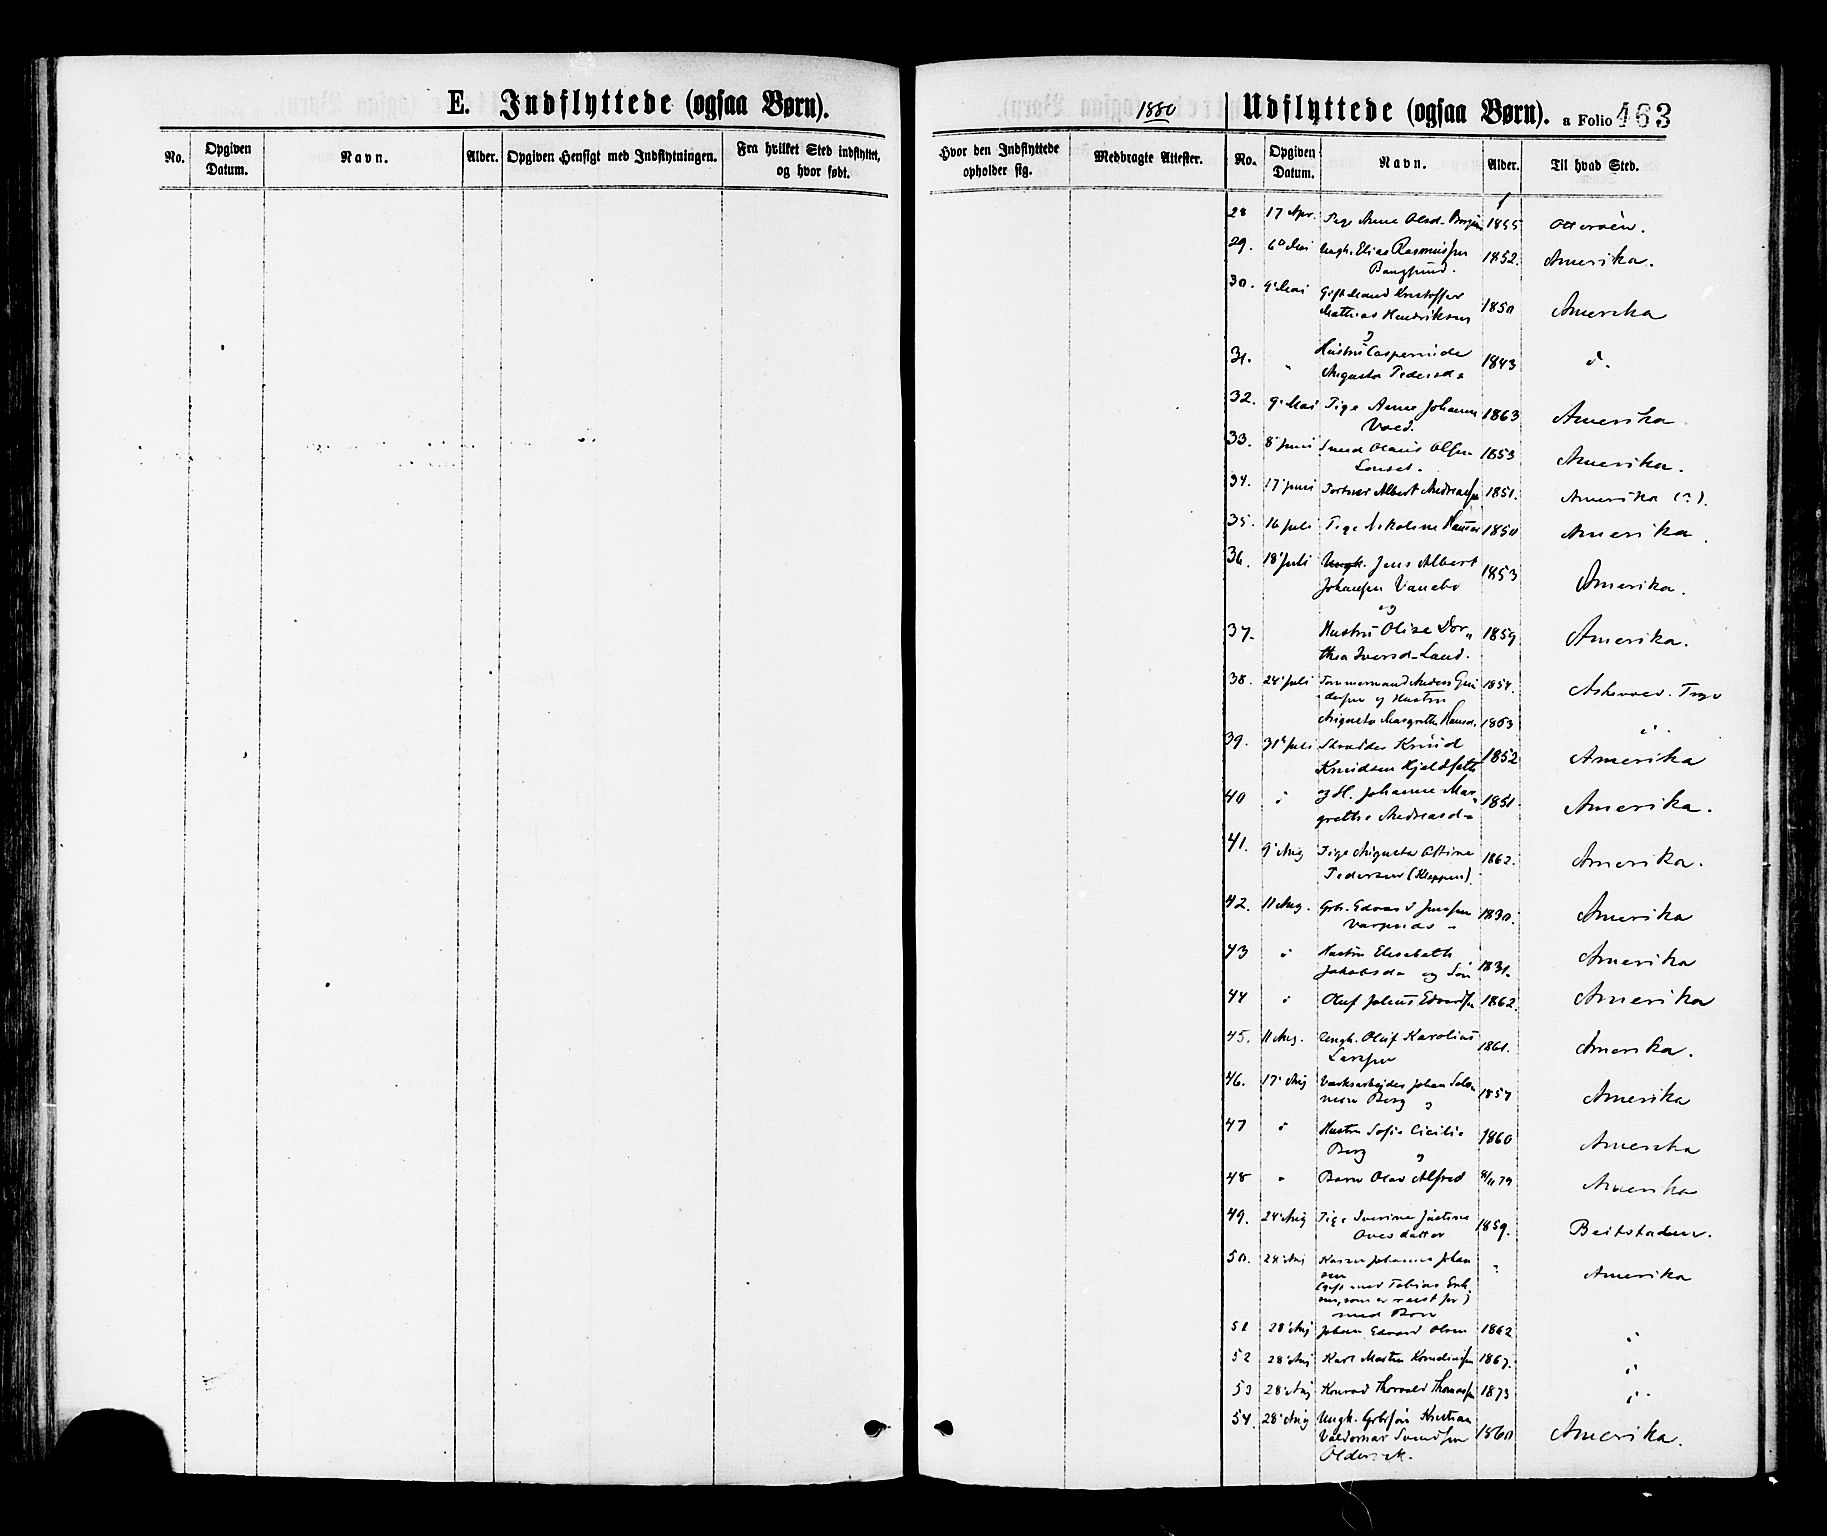 E. Indflyttede (ogsaa Børn).
No. Opgiven Datum. Navn. Alder. Opgiven Hensigt med Indflytningen. Fra hvilket Sted indflyttet, og hvor født.
1880 Udflyttede (ogsaa Børn). a Folio 463
Hvor den Indflyttede opholder sig. Medbragte Attester. No. Opgiven Datum. Navn. Alder. Til hvad Sted.
28 17 Apr. Pige Anne Olsd. 1855 Otterøen.
29. 6 Mai Ungk. Elias Rasmussen 1852. Amerika.
Bangsund.
30. 9 Mai Gift Mand Kristoffer
Mathias Hendriksen 1850 Amerika
og
31. " Hustru Caspernide
Augusta Pedersd. 1843 d.
32. 9 Mai Pige Anne Johanna 1863 Amerika.
33. 8 Juni Smed Olaus Olsen 1853 Amerika.
34. 17 Juni Albert Andreassen 1851. Amerika (?).
35. 16 Juli Pige Nikoline Hansd 1850 Amerika.
36. 18 Juli Ungk. Jens Albert
Johansen Vanebo 1853 Amerika.
og
37. Hustru Olise Dor„ 1859 Amerika.
thea Iversd. Laud.
38. 24 Juli Tømmermand Anders 1854.
og Hustru
Augusta Margrethe Hansd. 1853
39. 31 Juli Skrædder Knud
Knudsen Kjeldseth 1852 Amerika
40 og H. Johanne Mar„ 1851. Amerika.
grethe Andreasd.
41. 9 Aug Pige Augusta 1862. Amerika.
Pedersen (Kleppen).
42. 11 Aug. Gbr. Edvard Jenssen 1830. Amerika
43 Hustru Elisabeth
Jakobsd. og Søn 1831. Amerika
44 Oluf Julius Edvardsen 1862. Amerika
45. 11 Aug. Ungk. Oluf Karolius 1861. Amerika.
Larssen
46. 17 Aug Værksarbejder Johan Salo„
mon Berg og 1857 Amerika
47 Hustru Sofie Cicilie 1860 Amerika
Berg og
48 Barn Olav Alfred 8/11 79 Amerika
49. 24 Aug Pige Iverine Justine 1859. Beitstaden.
Ovesdatter
50. 28 Aug Karen Johanna Johan
sen Amerika
(gift med Tobias Erik
sen, som er reist før)
med Børn
51 28 Aug Johan Edvard Olsen 1862
52 28 Aug Karl Martin 1867.
53 28 Aug Konrad Thorvald Thomassen 1873
54. 28 Aug Ungk. Kristian
Valdemar Svendsen 1860 Amerika.
Oldervik.